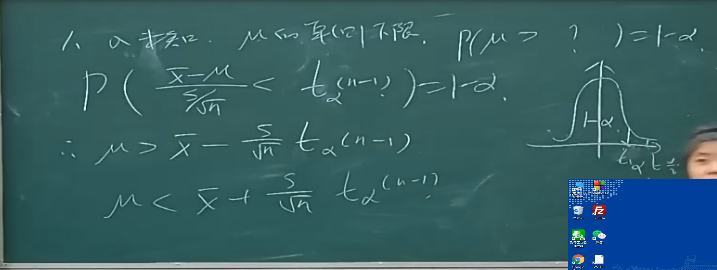 1. σ未知. μ的单侧下限. P(μ > ? ) = 1-α.
P( (x̄-μ)/(s/√n) < t_α(n-1) ) = 1-α.
∴ μ > x̄ - s/√n t_α(n-1)
μ < x̄ + s/√n t_α(n-1)
1-α
t_α t_α/2